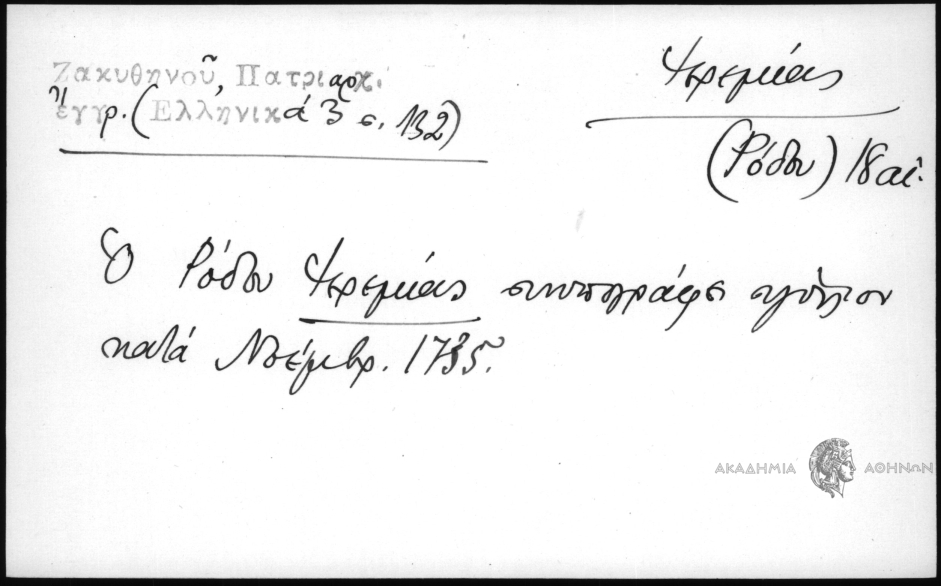 Ζακυθηνοῦ, Πατριαρχ.
ἔγγρ. (Ἑλληνικά 3 σ. 132)
Ἱερεμίας
(Ρόδου) 18 αἰ.
Ὁ Ρόδου Ἱερεμίας συνυπογράφει
κατά Νοέμβρ. 1735.
ΑΚΑΔΗΜΙΑ ΑΘΗΝΩΝ